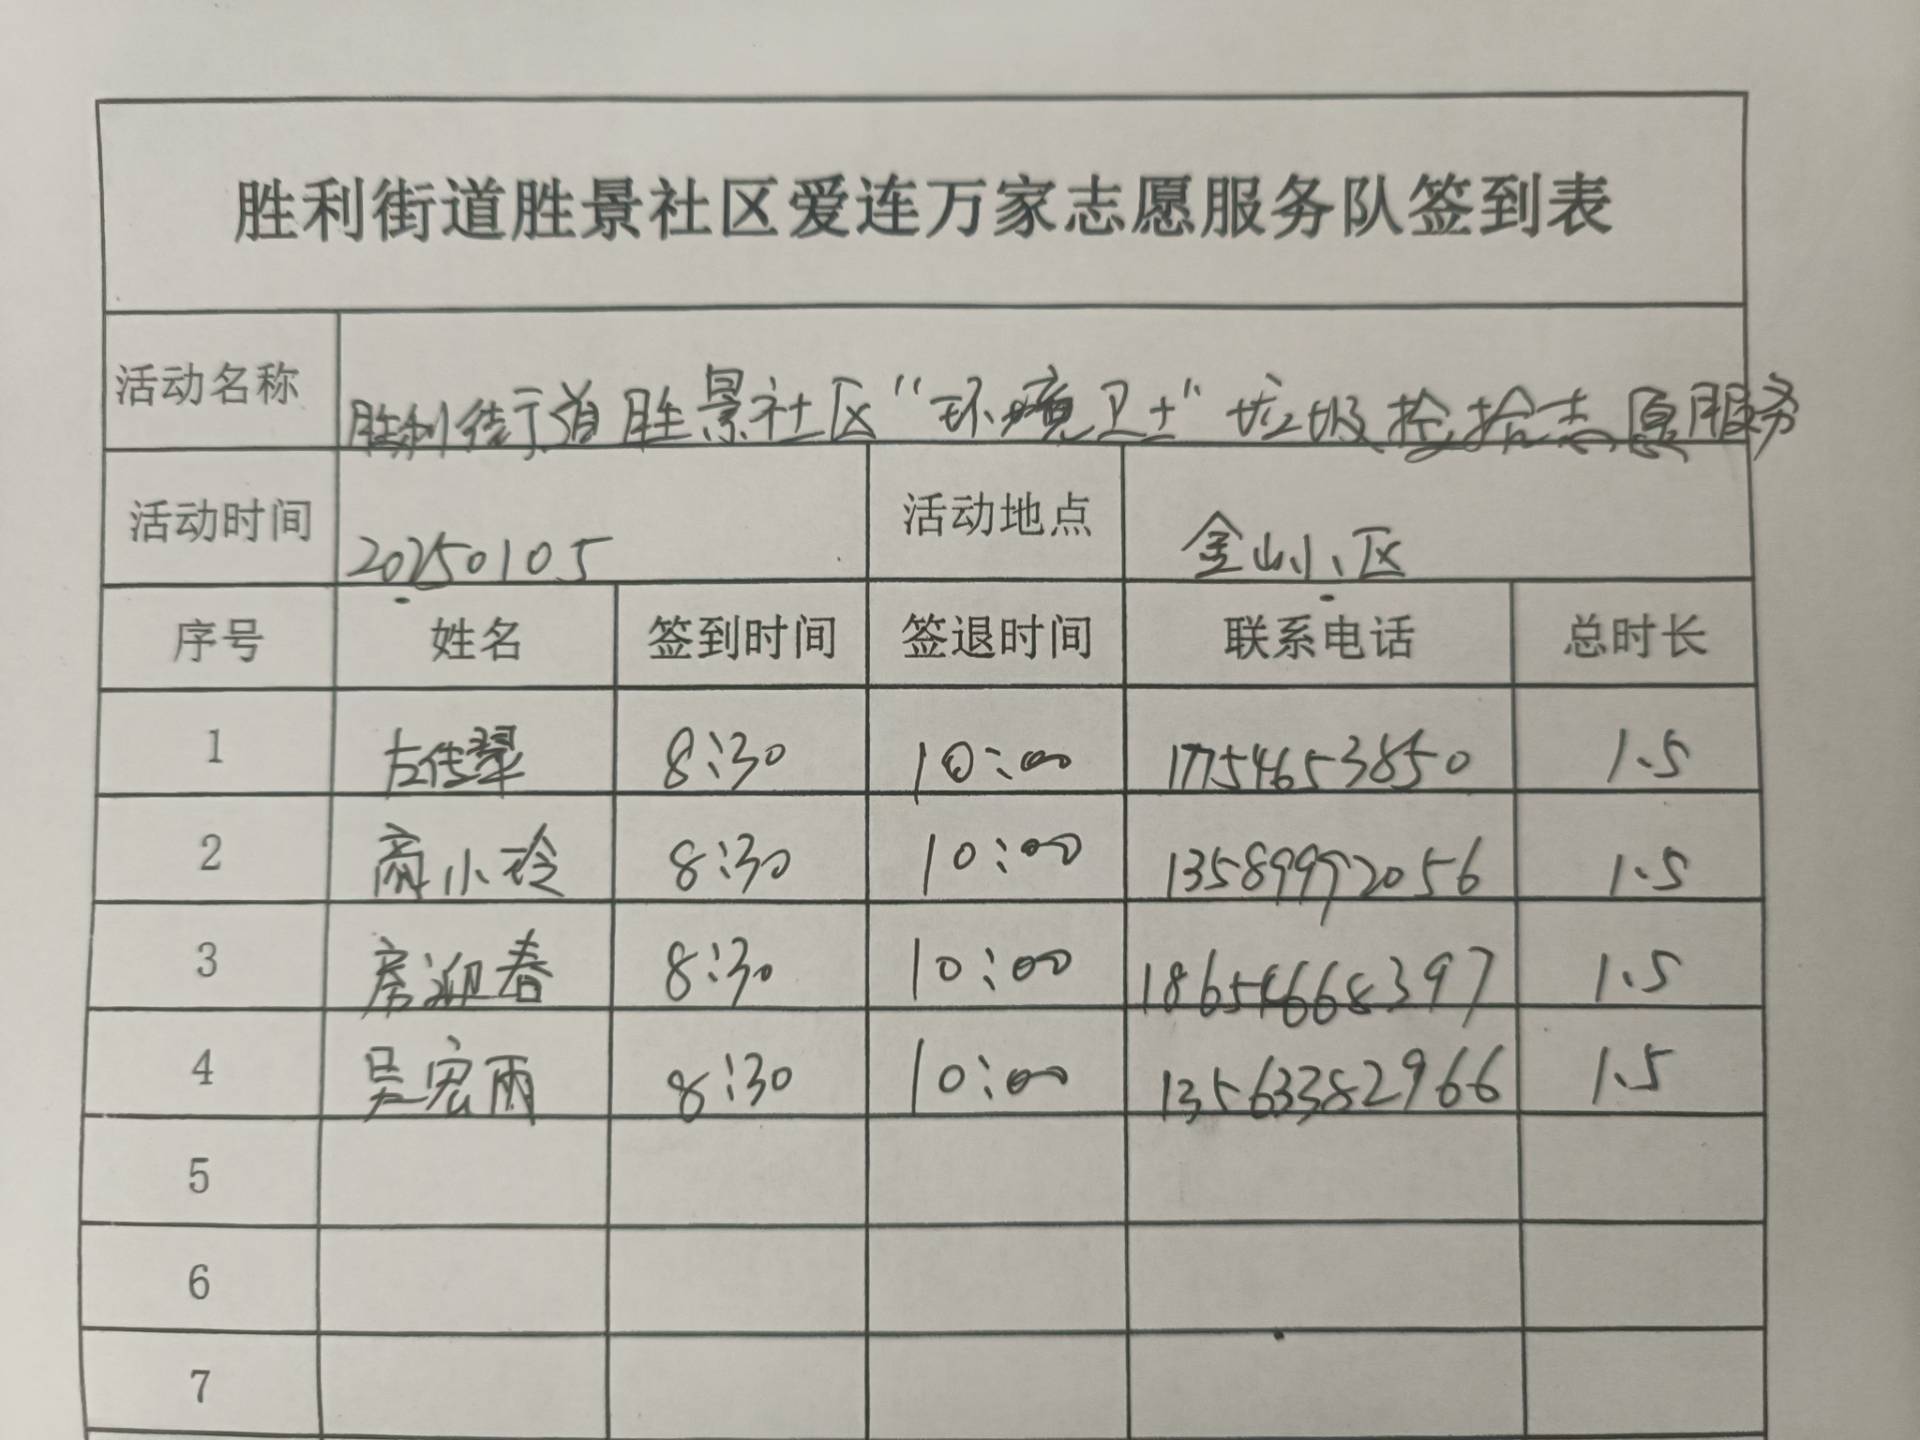 胜利街道胜景社区爱连万家志愿服务队签到表
活动名称 胜利街道胜景社区“环境卫士”垃圾捡拾志愿服务
活动时间 20250105 活动地点 金山小区
序号 姓名 签到时间 签退时间 联系电话 总时长
1 左传翠 8:30 10:00 17754653850 1.5
2 商小玲 8:30 10:00 13589992056 1.5
3 房迎春 8:30 10:00 18654668397 1.5
4 吴宏雨 8:30 10:00 13563382966 1.5
5
6
7